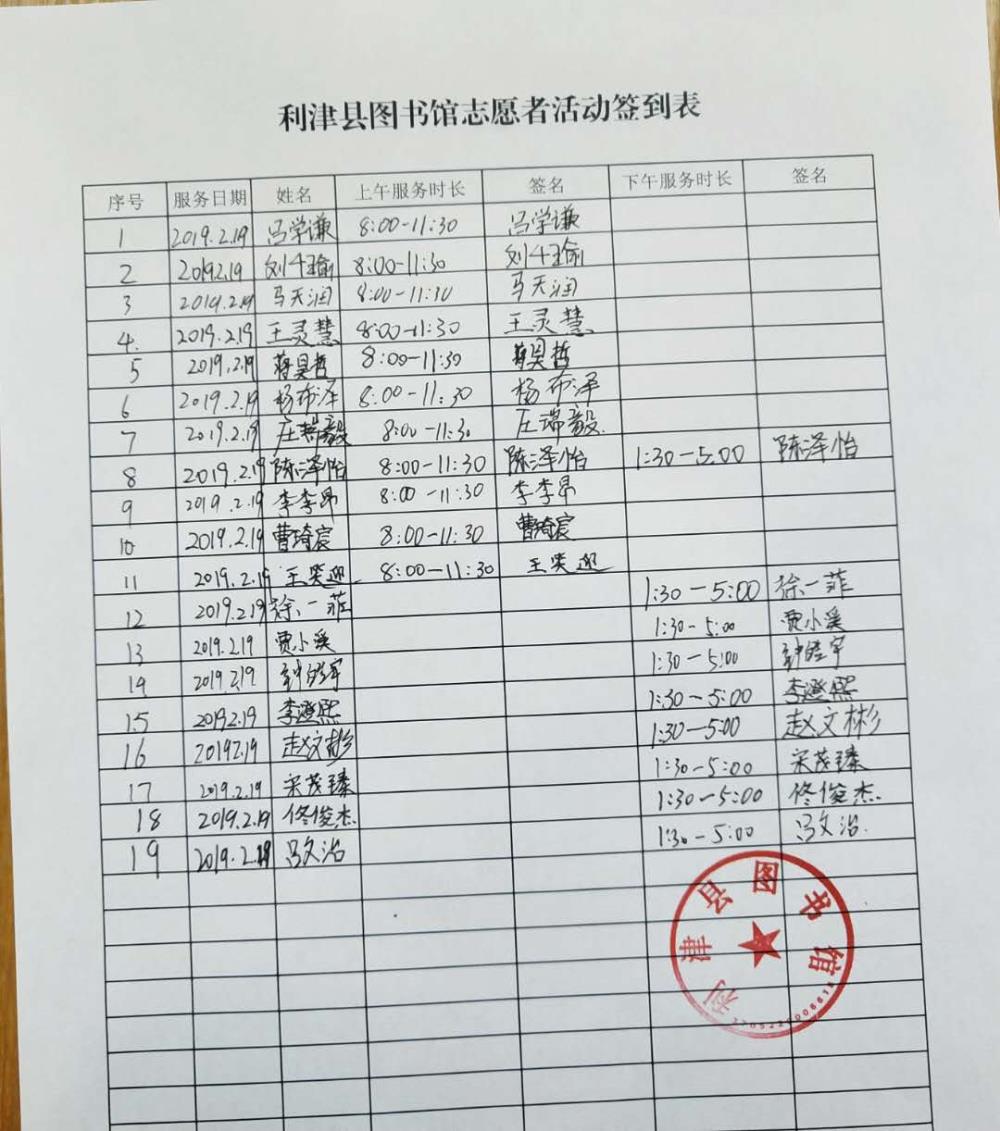 利津县图书馆志愿者活动签到表
序号 服务日期 姓名 上午服务时长 签名 下午服务时长 签名
1 2019.2.19 冯学谦 8:00-11:30 冯学谦
2 2019.2.19 刘千瑜 8:00-11:30 刘千瑜
3 2019.2.19 马天润 8:00-11:30 马天润
4. 2019.2.19 王灵慧 8:00-11:30 王灵慧
5 2019.2.19 蒋昊哲 8:00-11:30 蒋昊哲
6 2019.2.19 杨布泽 8:00-11:30 杨布泽
7 2019.2.19 庄瑞毅 8:00-11:30 庄瑞毅
8 2019.2.19 陈泽怡 8:00-11:30 陈泽怡 1:30-5:00 陈泽怡
9 2019.2.19 李李昂 8:00-11:30 李李昂
10 2019.2.19 曹琦宸 8:00-11:30 曹琦宸
11 2019.2.19 王笑迎 8:00-11:30 王笑迎
12 2019.2.19 徐一菲 1:30-5:00 徐一菲
13 2019.2.19 贾小溪 1:30-5:00 贾小溪
14 2019.2.19 1:30-5:00
15 2019.2.19 李澄熙 1:30-5:00 李澄熙
16 2019.2.19 赵文彬 1:30-5:00 赵文彬
17 2019.2.19 宋茂臻 1:30-5:00 宋茂臻
18 2019.2.19 佟俊杰 1:30-5:00 佟俊杰
19 2019.2.19 吕文治 1:30-5:00 吕文治
利津县图书馆